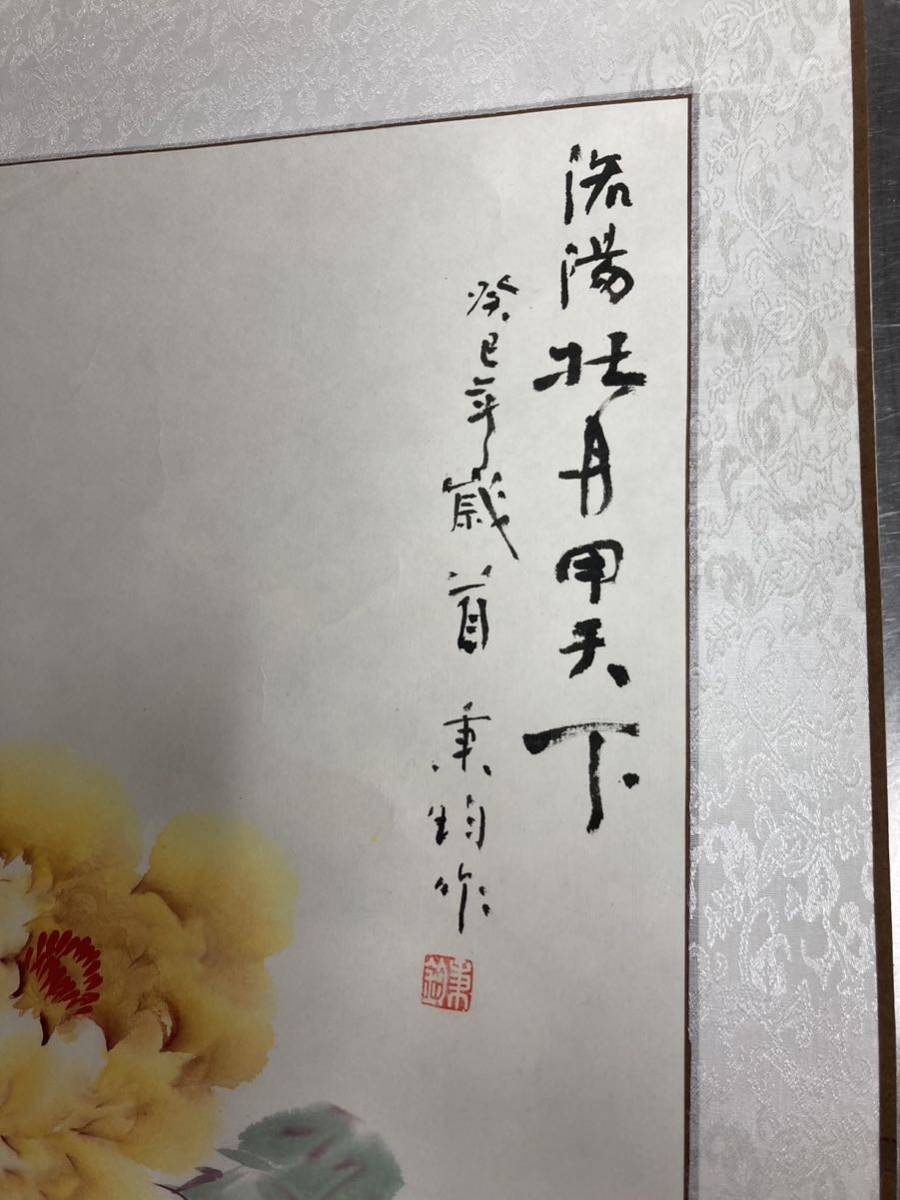 洛陽牡丹甲天下
癸巳年歲首 秉鈞作
秉鈞